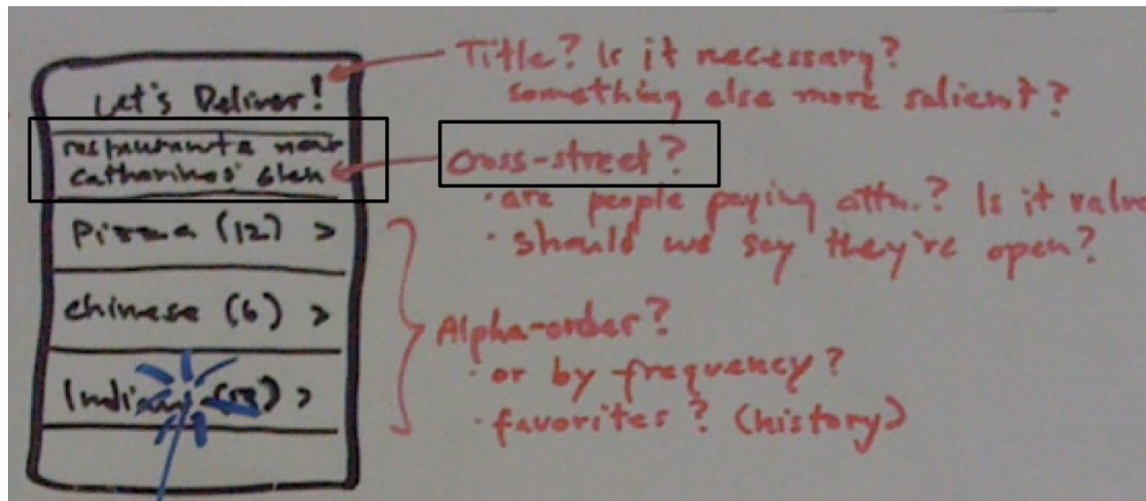 Let's Deliver!
restaurants near
Catharine & 6th
Pizza (12) >
Chinese (6) >
Indian >
Title? Is it necessary?
something else more salient?
Cross-street?
• are people paying attn.? Is it
• should we say they're open?
Alpha-order?
• or by frequency?
• favorites? (history)